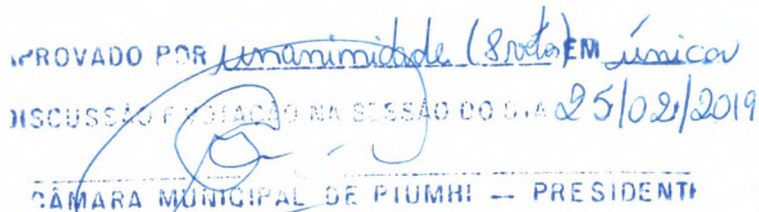 APROVADO POR unanimidade (8 votos) EM única
DISCUSSÃO E VOTAÇÃO NA SESSÃO DO DIA 25/02/2019
CÂMARA MUNICIPAL DE PIUMHI — PRESIDENTE